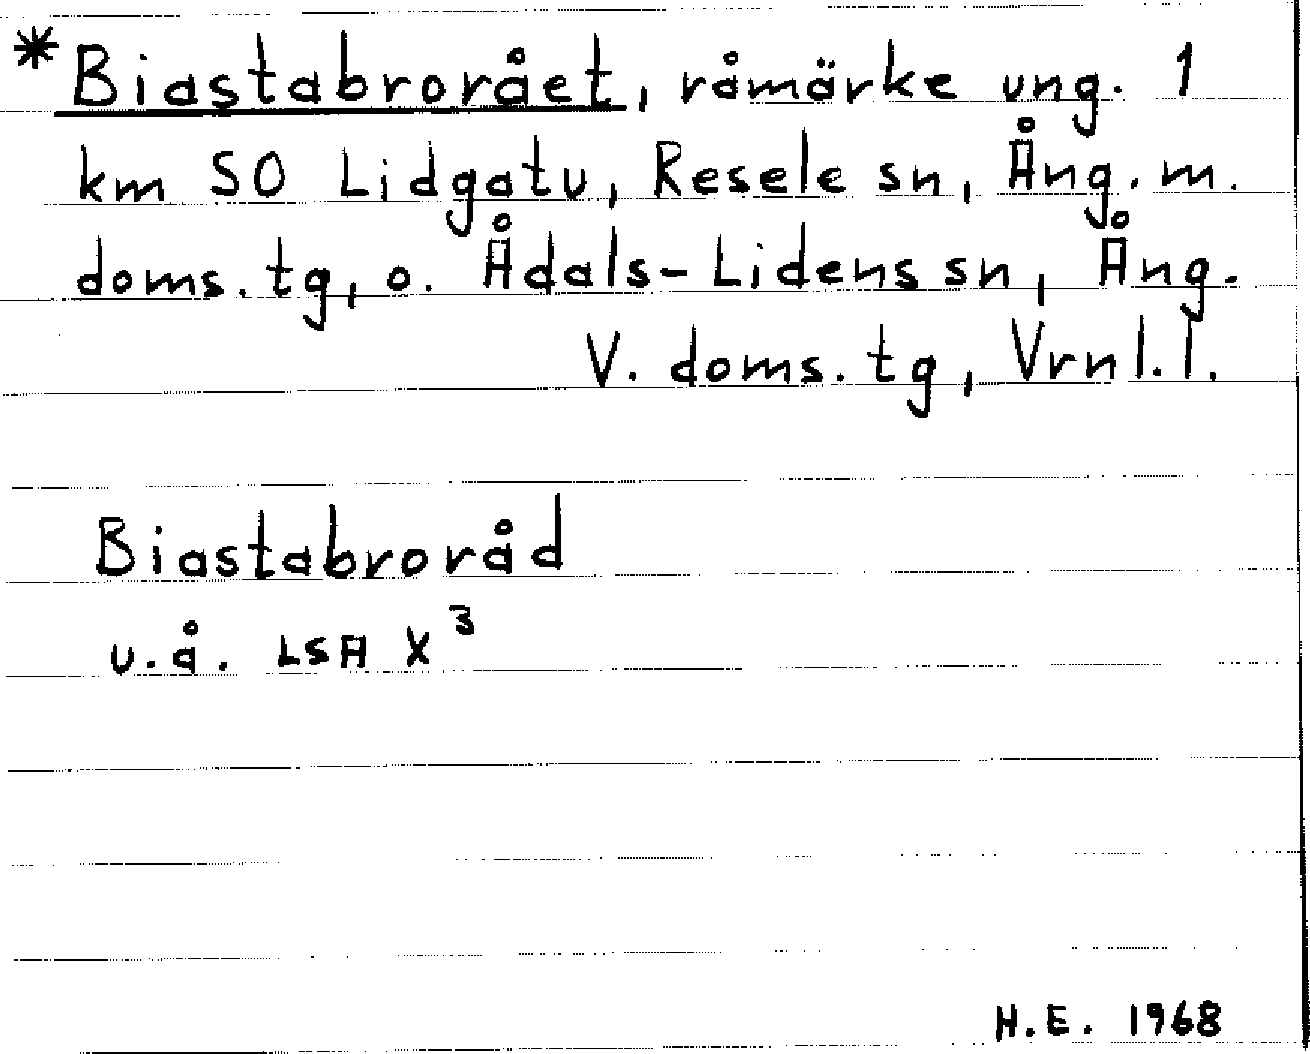 *Biastabrorået, råmärke ung. 1
km SO Lidgatu, Resele sn, Ång. m.
doms. tg, o. Ådals-Lidens sn, Ång.
V. doms. tg, Vrnl. l.
Biastabroråd
u.å. LSA X³
H.E. 1968